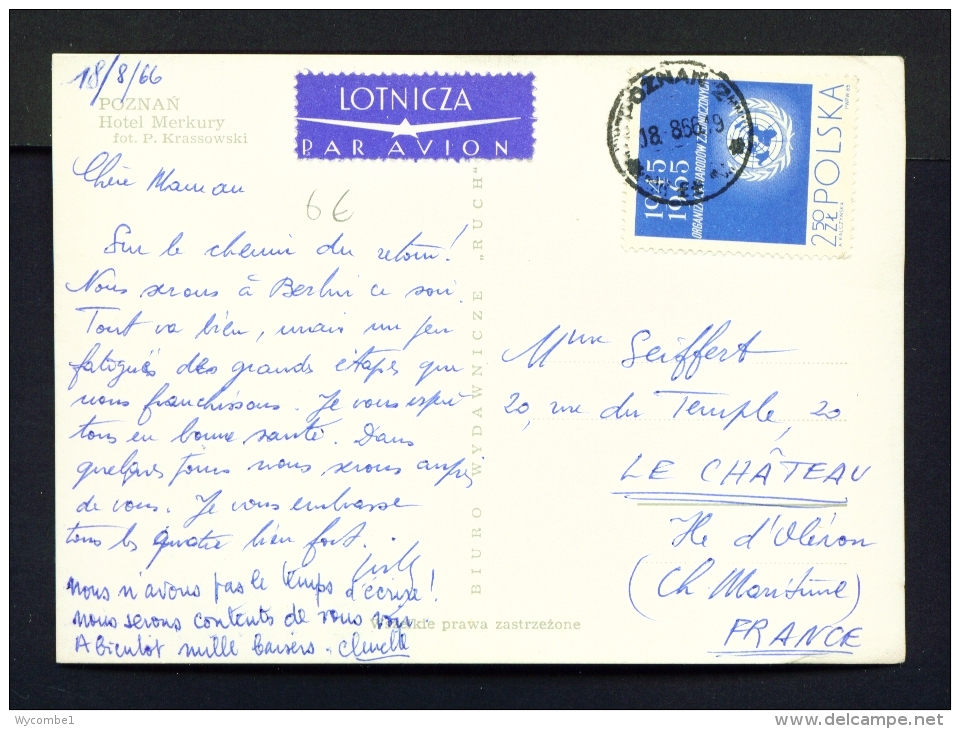 18/8/66
POZNAŃ
Hotel Merkury
fot. P. Krassowski
LOTNICZA
PAR AVION
POZNAŃ 2
18.8.66-19
1945
1965
ORGANIZACJA NARODÓW ZJEDNOCZONYCH
2,50 ZŁ POLSKA
6€
Chère Maman
Sur le chemin du retour!
Nous serons à Berlin ce soir.
Tout va bien, mais un peu
fatigués des grandes étapes que
nous franchissons. Je vous espère
tous en bonne santé. Dans
quelques jours nous serons auprès
de vous. Je vous embrasse
tous les quatre bien fort.
nous n'avons pas le temps d'écrire!
nous serons contents de vous voir.
A bientôt mille baisers.
BIURO WYDAWNICZE „RUCH"
Wszelkie prawa zastrzeżone
Mme Seiffert
20, rue du Temple, 20
LE CHÂTEAU
Ile d'Oléron
(Ch Maritime)
FRANCE
Wycombe1
www.delcampe.net